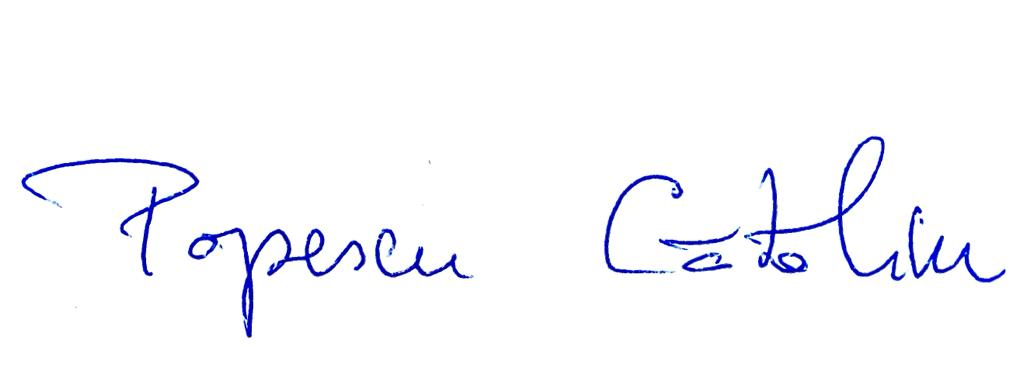 Popescu Catalin